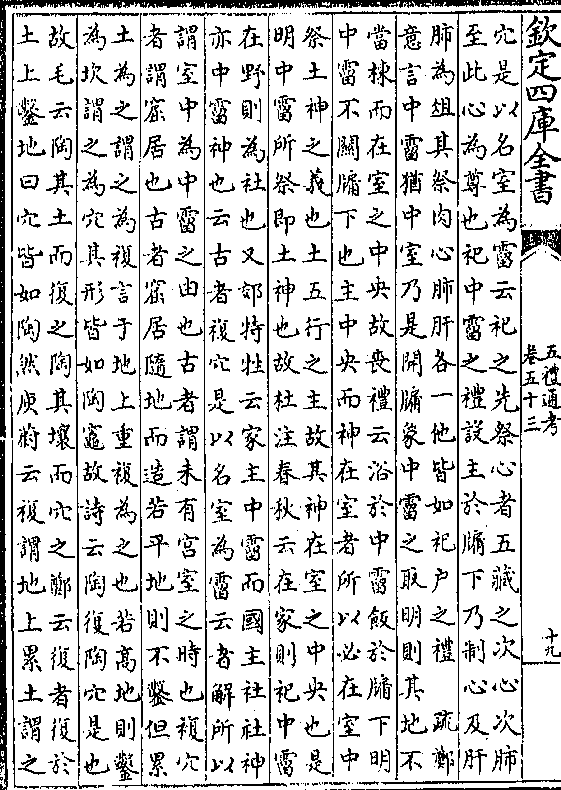 欽定四庫全書
五禮通考
卷五十三
十九
穴是以名室為霤云祀之先祭心者五藏之次心次肺
至此心為尊也祀中霤之禮設主於牖下乃制心及肝
肺為俎其祭肉心肺肝各一他皆如祀户之禮 疏鄭
意言中霤猶中室乃是開牖象中霤之取明則其地不
當棟而在室之中央故喪禮云浴於中霤飯於牖下明
中霤不關牖下也主中央而神在室者所以必在室中
祭土神之義也土五行之主故其神在室之中央也是
明中霤所祭即土神也故杜注春秋云在家則祀中霤
在野則為社也又郊特牲云家主中霤而國主社社神
亦中霤神也云古者複穴是以名室為霤云者解所以
謂室中為中霤之由也古者謂未有宮室之時也複穴
者謂窟居也古者窟居隨地而造若平地則不鑿但累
土為之謂之為複言于地上重複為之也若高地則鑿
為坎謂之為穴其形皆如陶竈故詩云陶復陶穴是也
故毛云陶其土而復之陶其壤而穴之鄭云復者復於
土上鑿地曰穴皆如陶然庾蔚云複謂地上累土謂之